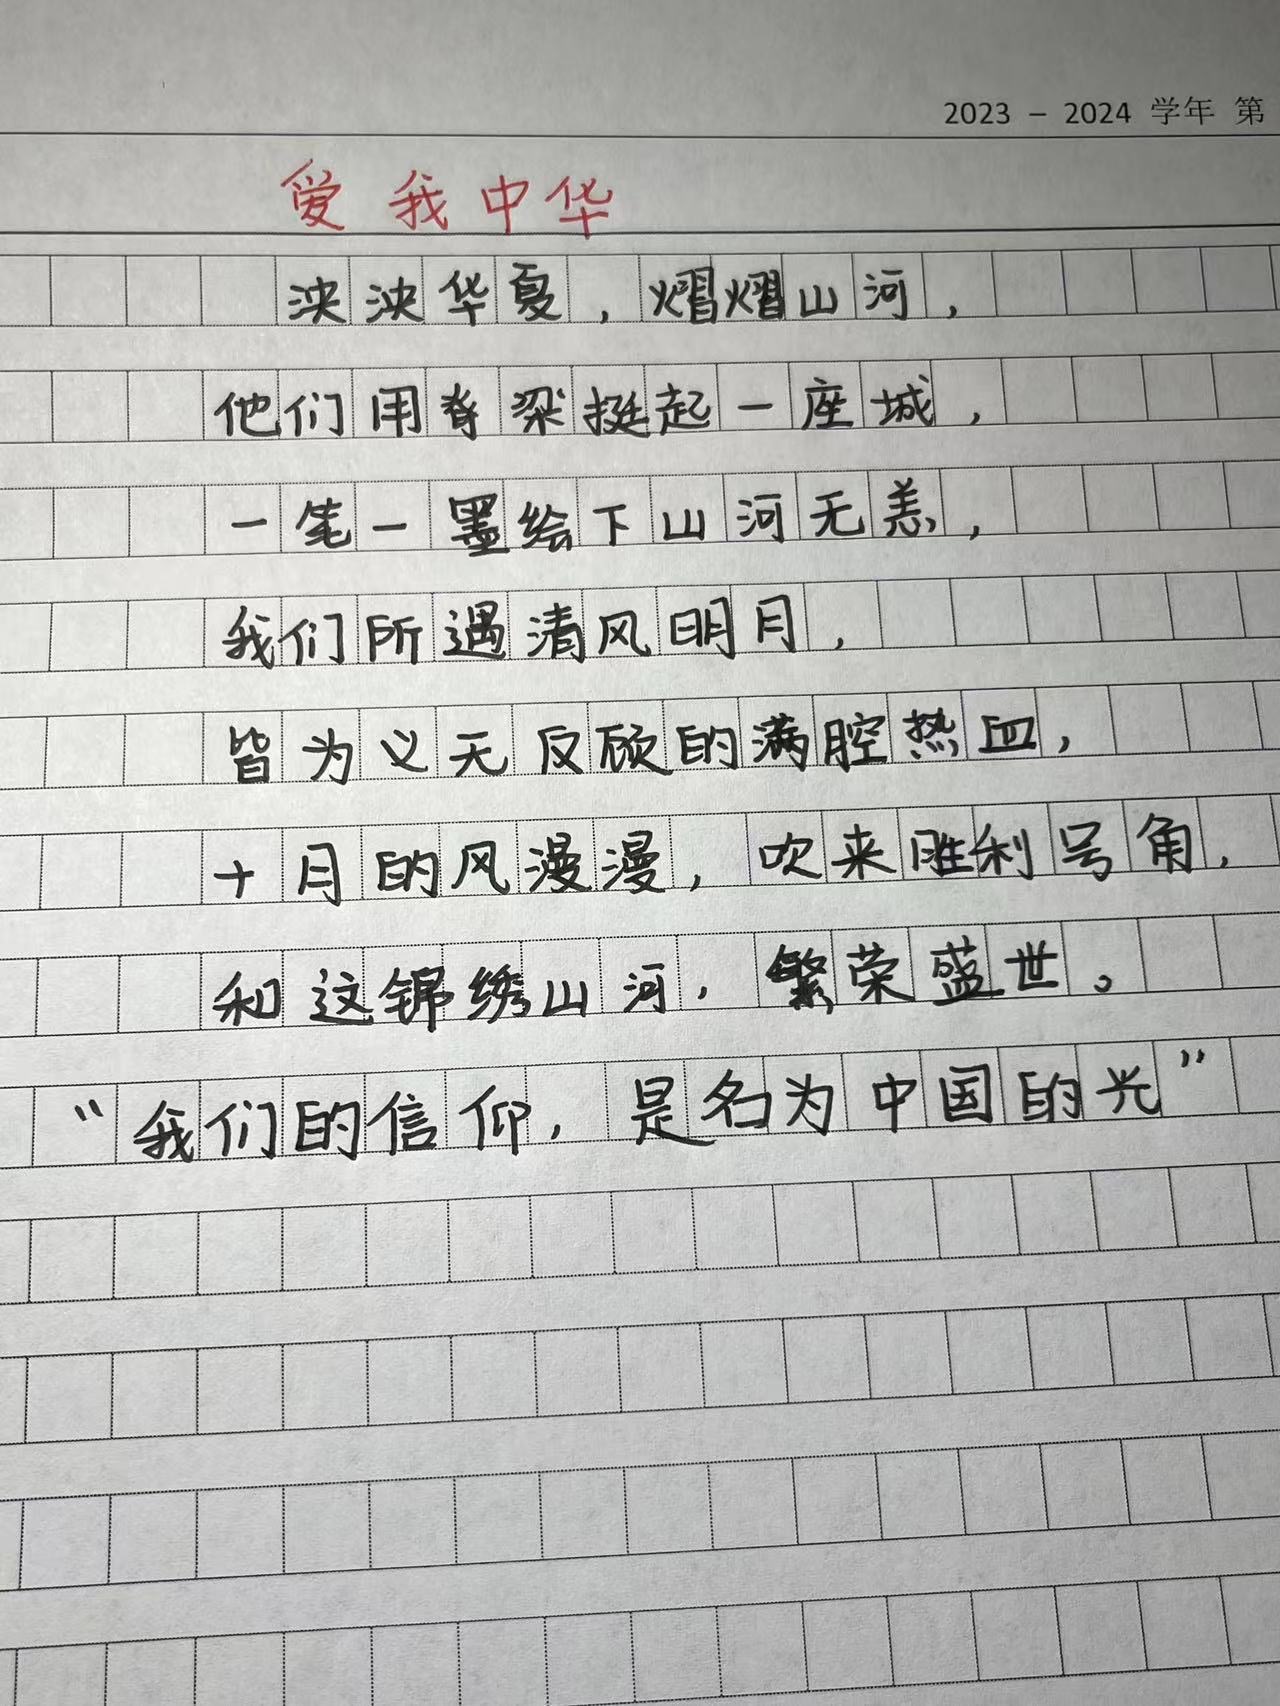 2023 – 2024 学年 第
爱我中华
泱泱华夏，熠熠山河，
他们用脊梁挺起一座城，
一笔一墨绘下山河无恙，
我们所遇清风明月，
皆为义无反顾的满腔热血，
十月的风漫漫，吹来胜利号角，
和这锦绣山河，繁荣盛世。
“我们的信仰，是名为中国的光”